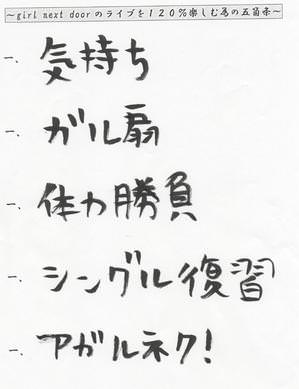 ～girl next doorのライブを１２０％楽しむ為の五箇条～
一、気持ち
一、ガル扇
一、体力勝負
一、シングル復習
一、アガルネク!